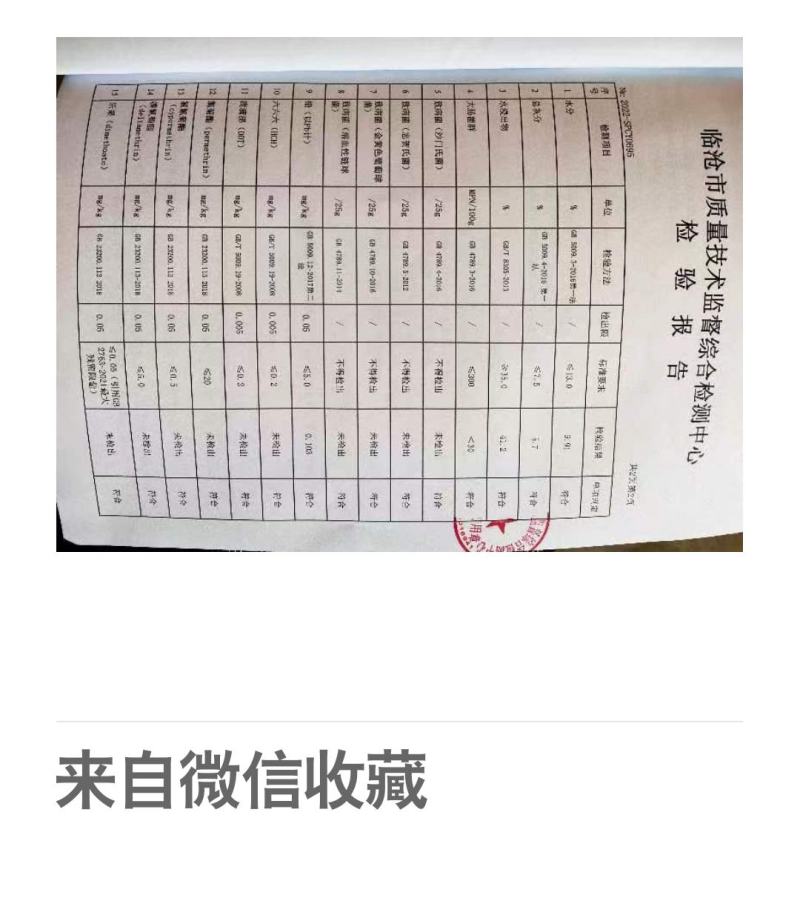 临沧市质量技术监督综合检测中心
检 验 报 告
共2页 第2页
序号 检测项目 单位 检验方法 检出限 标准要求 检验结果 单项判定
1 水分 % GB 5009.3-2016第一法 / ≤13.0 符合
2 总灰分 % GB 5009.4-2016 第一法 / ≤7.5 符合
3 水浸出物 % GB/T 8305-2013 / ≥35.0 符合
4 大肠菌群 MPN/100g GB 4789.3-2016 / ≤300 <30 符合
5 致病菌（沙门氏菌） /25g GB 4789.4-2016 / 不得检出 未检出 符合
6 致病菌（志贺氏菌） /25g GB 4789.5-2012 / 不得检出 未检出 符合
7 致病菌（金黄色葡萄球菌） /25g GB 4789.10-2016 / 不得检出 未检出 符合
8 致病菌（溶血性链球菌） /25g GB 4789.11-2014 / 不得检出 未检出 符合
9 铅（以Pb计） mg/kg GB 5009.12-2017第二法 0.05 ≤5.0 0.103 符合
10 六六六（HCH） mg/kg GB/T 5009.19-2008 0.005 ≤0.2 未检出 符合
11 滴滴涕（DDT） mg/kg GB/T 5009.19-2008 0.005 ≤0.2 未检出 符合
12 氯菊酯（permethrin） mg/kg GB 23200.113-2018 0.05 ≤20 未检出 符合
13 氯氰菊酯（cypermethrin） mg/kg GB 23200.113-2018 0.05 ≤0.5 未检出 符合
14 溴氰菊酯（deltamethrin） mg/kg GB 23200.113-2018 0.05 ≤5.0 未检出 符合
15 乐果（dimethoate） mg/kg GB 23200.113-2018 0.05 ≤0.05（引用GB 2763-2021最大残留限量） 未检出 符合
来自微信收藏